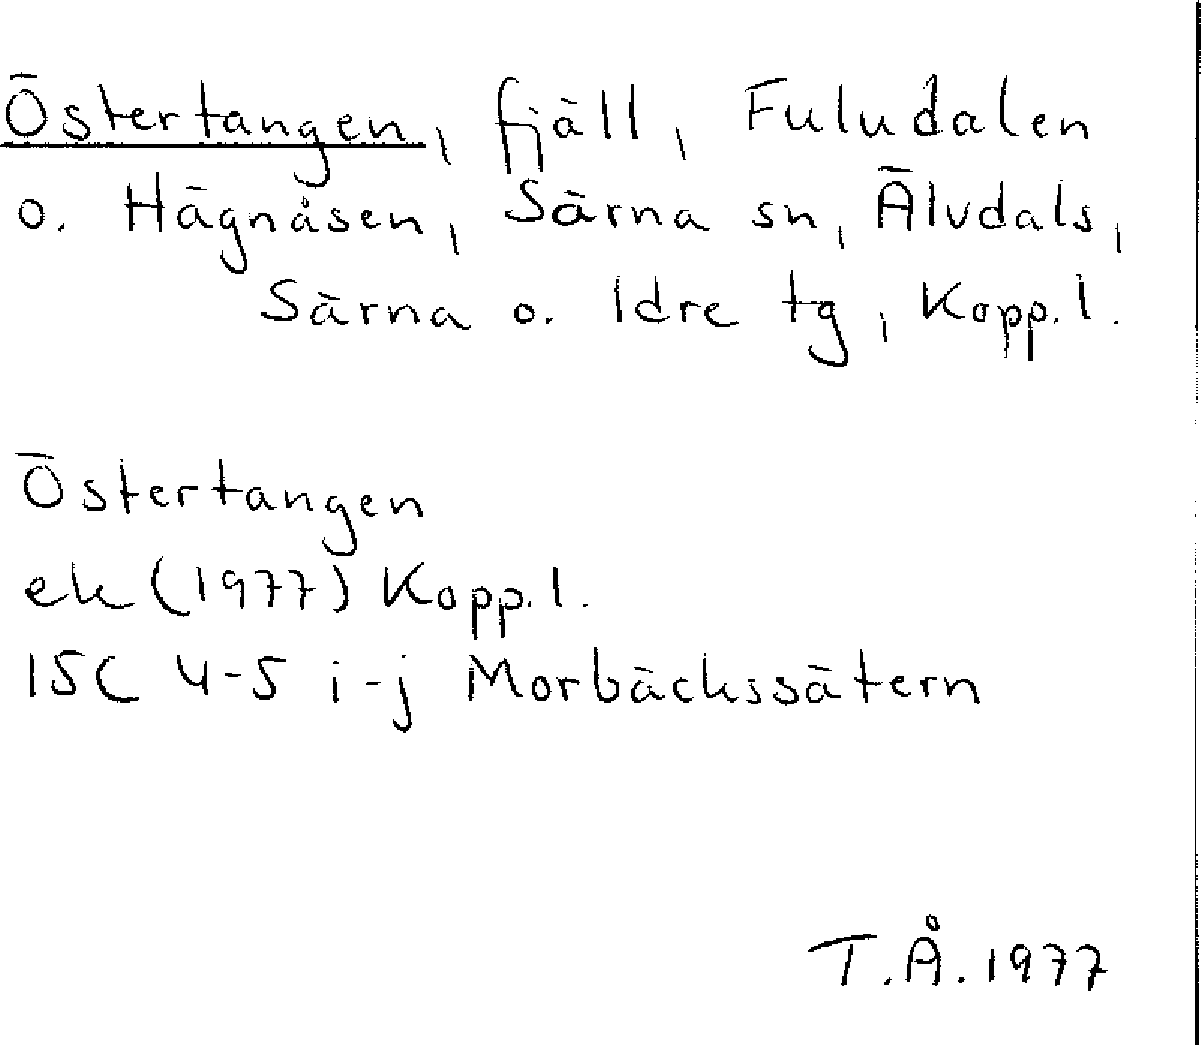 Östertangen, fjäll, Fuludalen
o. Hägnåsen, Särna sn, Älvdals,
Särna o. Idre tg, Kopp. l.
Östertangen
ek (1977) Kopp. l.
15C 4-5 i-j Morbäckssätern
T.Å. 1977